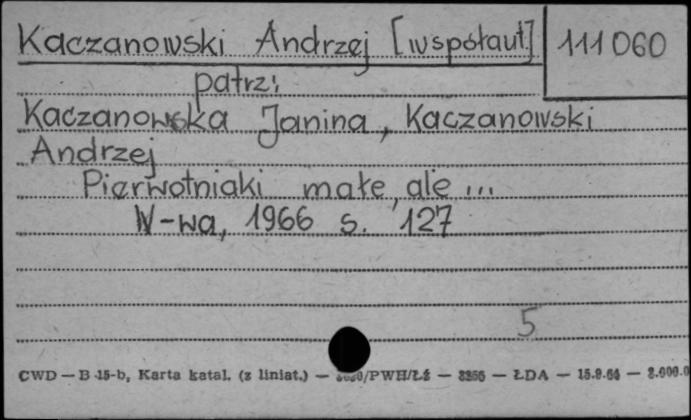 Kaczanowski Andrzej [współaut.] 111060
patrz:
Kaczanowska Janina, Kaczanowski
Andrzej
Pierwotniaki małe, ale ...
W-wa, 1966 s. 127
5
CWD — B 15-b, Karta katal. (z liniat.) — /PWH/Łź — — ŁDA — 15.9.64 —